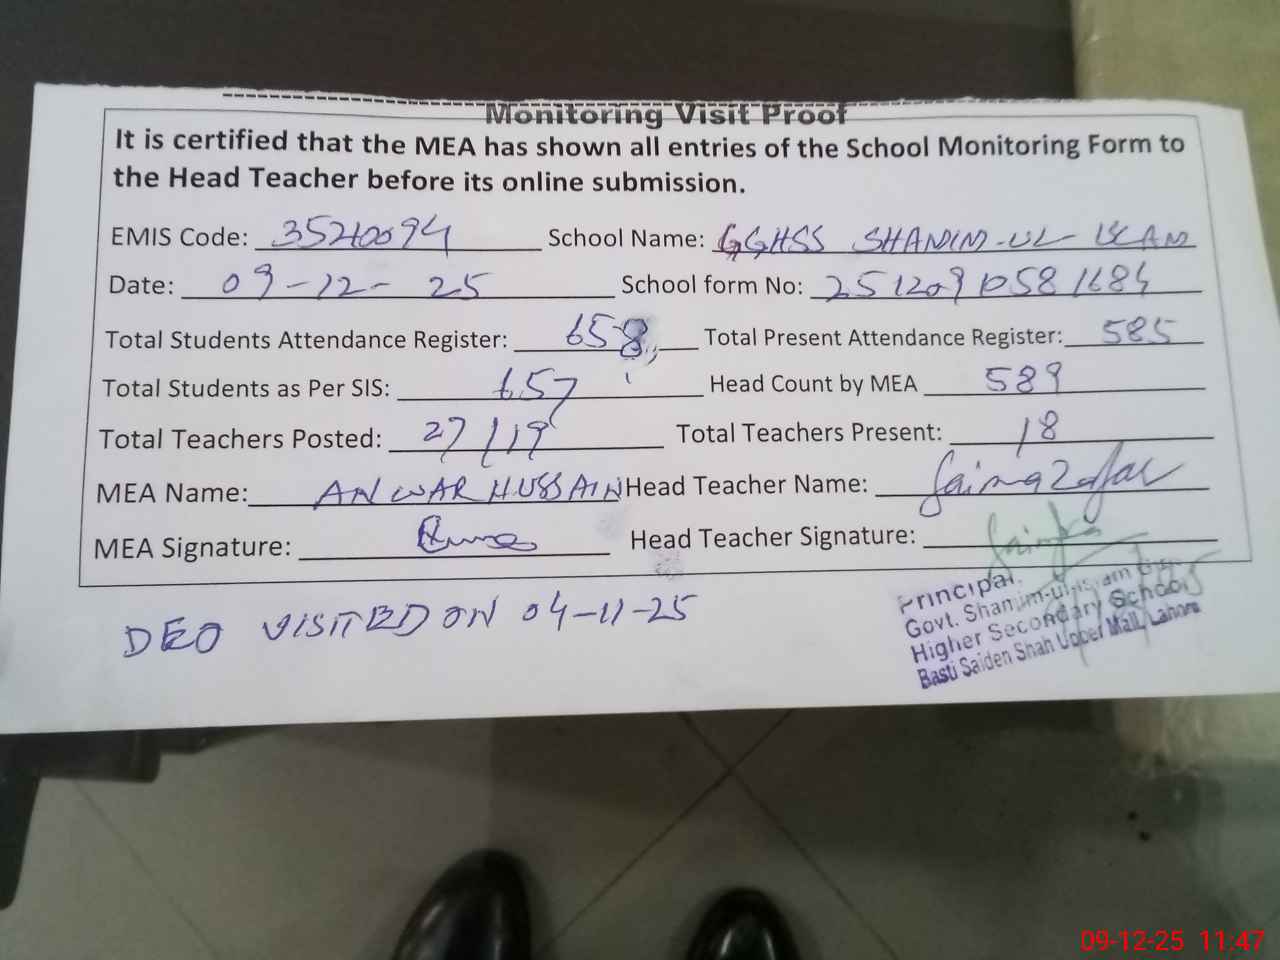 Monitoring Visit Proof
It is certified that the MEA has shown all entries of the School Monitoring Form to
the Head Teacher before its online submission.
EMIS Code: 35210094 School Name: GGHSS SHAMIM-UL-ISLAM
Date: 09-12-25 School form No: 25120910581684
Total Students Attendance Register: 658 Total Present Attendance Register: 585
Total Students as Per SIS: 657 Head Count by MEA 589
Total Teachers Posted: 27/19 Total Teachers Present: 18
MEA Name: ANWAR HUSSAIN Head Teacher Name: Saima Zafar
MEA Signature: Head Teacher Signature: Saima
DEO VISITED ON 04-11-25
Principal.
Govt. Shamim-ul-islam
Higher Secondary School
Basti Saiden Shah Upper Mall, Lahore
09-12-25 11:47